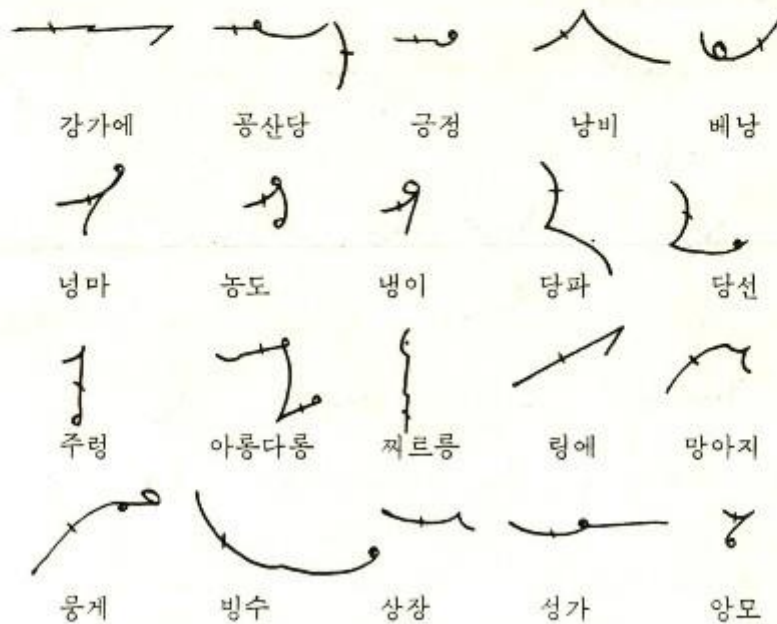 강가에 공산당 긍정 낭비 베낭
넝마 농도 냉이 당파 당선
주렁 아롱다롱 찌르릉 링에 망아지
뭉게 빙수 상장 성가 앙모